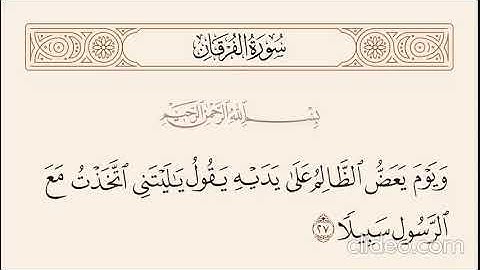 سُورَةُ الفُرْقَانِ
بِسْمِ اللَّهِ الرَّحْمَٰنِ الرَّحِيمِ
وَيَوْمَ يَعَضُّ الظَّالِمُ عَلَىٰ يَدَيْهِ يَقُولُ يَا لَيْتَنِي اتَّخَذْتُ مَعَ
الرَّسُولِ سَبِيلًا ٢٧
clideo.com